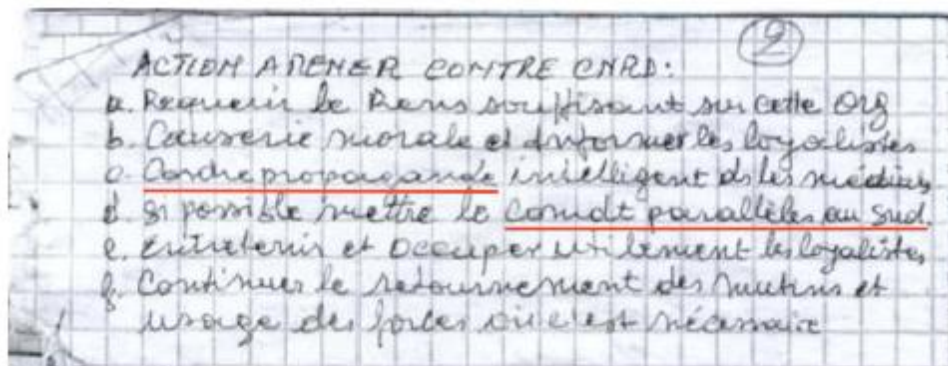 2
ACTION A MENER CONTRE CNRD:
a. Requerir le Rens souffisant sur cette Org
b. Causerie morale et Informer les loyalistes
c. Contrepropagande intelligent ds les médias
d. Si possible mettre le Comdt parallèles au Sud.
e. Entretenir et Occuper utilement les loyalistes,
f. Continuer le retournement des mutins et
usage des forces où c'est nécessaire